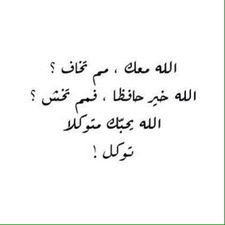 الله معك ، مم تخاف ؟
الله خير حافظا ، فمم تخش ؟
الله يحبّك متوكلا
توكل !